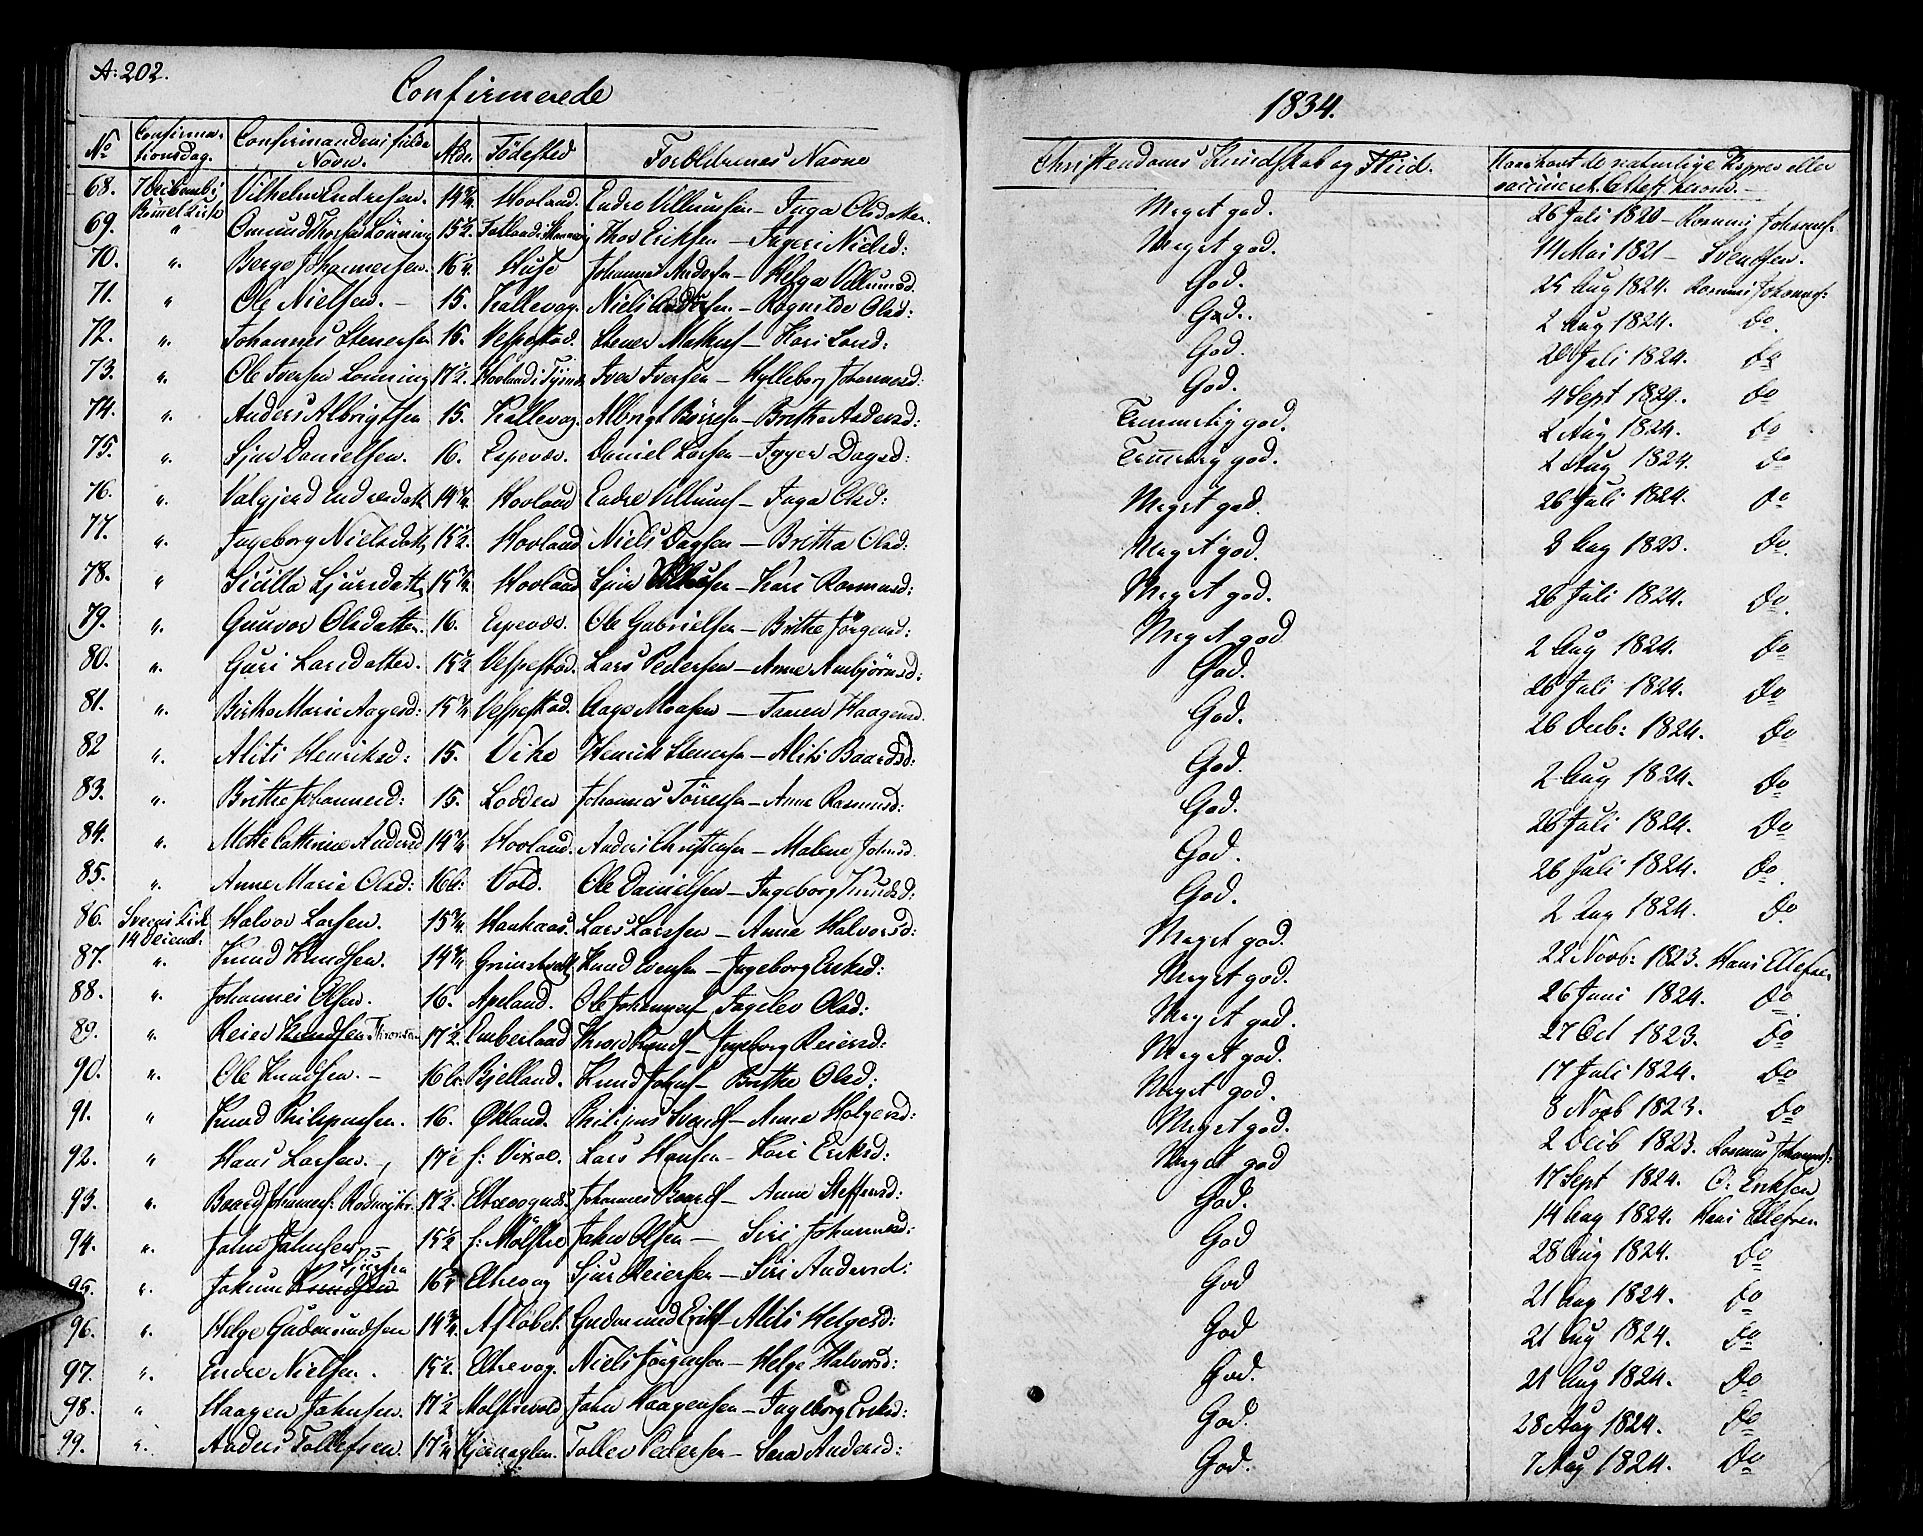 A: 202.
Confirmerede
1834.
No Confirmationsdag. Confirmandens fulde Navn. Alder Födested Forældrenes Navne Christendoms Kundskab og Fliid. Have havt de naturlige Kopper eller vaccineret Attest herom.
68. 7 Decemb: i Vilhelm Endresen. 14 3/4 Hovland. Endre Villumsen – Inga Olsdatter. Meget god. 26 Juli 1824 – Rasmus Johannes:
69. " Omund Thorsen Lönning 15 1/2. Thor Eriksen – Ingeri Nielsd: Meget god. 14 Mai 1821 – Svendsen.
70. " Berge Johannesen. 16 1/4 Huse Johannes Andersen – Helga Villumsd. God. 25 Aug 1824. Rasmus Johannes:
71. " Ole Nielsen. – 15. Kallevog. Niels Andersen – Rognilde Olsd: God. 2 Aug 1824. Do
72. " Johannes Stenersen 16. Vespestad. Stener – Kari Larsd: God. 26 Juli 1824. Do
73. " Ole Iversen Lönning 17 1/2. Hovland i Iver Iversen – Hylleborg Johannesd: God. 4 Sept 1829. Do
74. " Anders Albrigtsen 15. Kallevog. Albrigt Börjesen – Brethe Andersd: Temmelig god. 2 Aug 1824. Do
75. " Sjur Danielsen. 16. Espevær. Daniel Larsen – Dagsd: Temmelig god. 2 Aug 1824. Do
76. " Valgjerd Endresdatt 14 3/4 Hovland Endre Villums – Inga Olsd: Meget god. 26 Juli 1824. Do
77. " Ingeborg Nielsdatt 15 1/2. Hovland Niels Dagsen – Britha Olsd: Meget god. 3 Aug 1823. Do
78. " Sicilla Sjursdatt 15 3/4 Hovland Sjur Villumsen – Kari Rasmusd: Meget god. 26 Juli 1824. Do
79. " Gunvor Olsdatter. 16. Espevær. Ole Gabrielsen – Brithe Jörgensd: Meget god 2 Aug 1824. Do
80. " Guri Larsdatter. 15 1/2 Vespestad. Lars Pedersen – Anne Ambjörnsd: God. 26 Juli 1824. Do
81. " Birthe Marie Aagesd: 15 3/4 Vespestad. Aage Moasen – Taaren Haagensd. God. 26 Decb: 1824. Do
82 " Aliti Henriksd: 15. Vike Henrik Stenersen – Aliti Baardsd: God. 2 Aug 1824. Do
83. " Brithe Johannesd: 15. Lodden Johannes Törresen – Anne Rasmusd: God. 26 Juli 1824. Do
84. " Mette Cathrine Andersd 14 3/4 Hovland. Anders Christensen – Malene Johnsd. God. 26 Juli 1824. Do
85. " Anne Maria Olsd: 16 1/4 Vold. Ole Danielsen – Ingeborg Knudsd: God. 2 Aug 1824. Do
86. 14 Decemb: Halvor Larsen. 15 3/4 Haukaas. Lars Larssen – Anna Halvorsd: Meget god. 22 Novb: 1823. Hans Ellefsen
87. " Knud Knudsen. 14 3/4 Knud Evensen – Ingeborg Eriksd: Meget god. 26 Juni 1824. Do
88. " Johannes Olsen. 16. Apeland. Ole Johannes – Ingelev Olsd: Meget god. 27 Oct 1823. Do
89. " Reier Knudsen Thronsen 17 1/2 Emberland – Ingeborg Reiersd: Meget god. 17 Juli 1824. Do
90. " Ole Knudsen. – 16 1/4 Bjelland. Knud Johns – Brithe Olsd: Meget god. 8 Novb 1823. Do
91. " Knud Philipussen. 16. Økland. Philipus Svends – Anna Holgersd: Meget god. 2 Decb 1823. Rasmus Johannes:
92. " Hans Larsen. 17 1/2 f: Vixøe. Lars Hansen – Kari Eriksd: Meget god 17 Sept 1824. O: Eriksen
93. " Baard Johannes: 17 1/2. Johannes Baards – Anna Steffensd: God. 14 Aug 1824. Hans Ellefsen
94. " John Johnsen – 15 1/2 f: Mölstre John Olsen – Siri Johannesd: God 28 Aug 1824. Do
95. " Jakum Knudsen Sjursen 16 1/4 Eltrevog Sjur Reiersen – Siri Andersd: God 21 Aug 1824. Do
96. " Helge Gudmundsen 14 3/4 Aflöbet. Gudmund Eriks – Aliti Helgesd: God 21 Aug 1824. Do
97. " Endre Nielsen. 15 1/2. Eltrevog. Niels Jörgensen – Helge Halvorsd: God. 21 Aug 1824. Do
98. " Haagen Johnsen. 17 1/2 Molstrevold John Haagensen – Ingeborg Eriksd: God. 28 Aug 1824. Do
99. " Anders Tollefsen. 17 1/4 Tollev Pedersen – Sara Andersd: God. 7 Aug 1824. Do